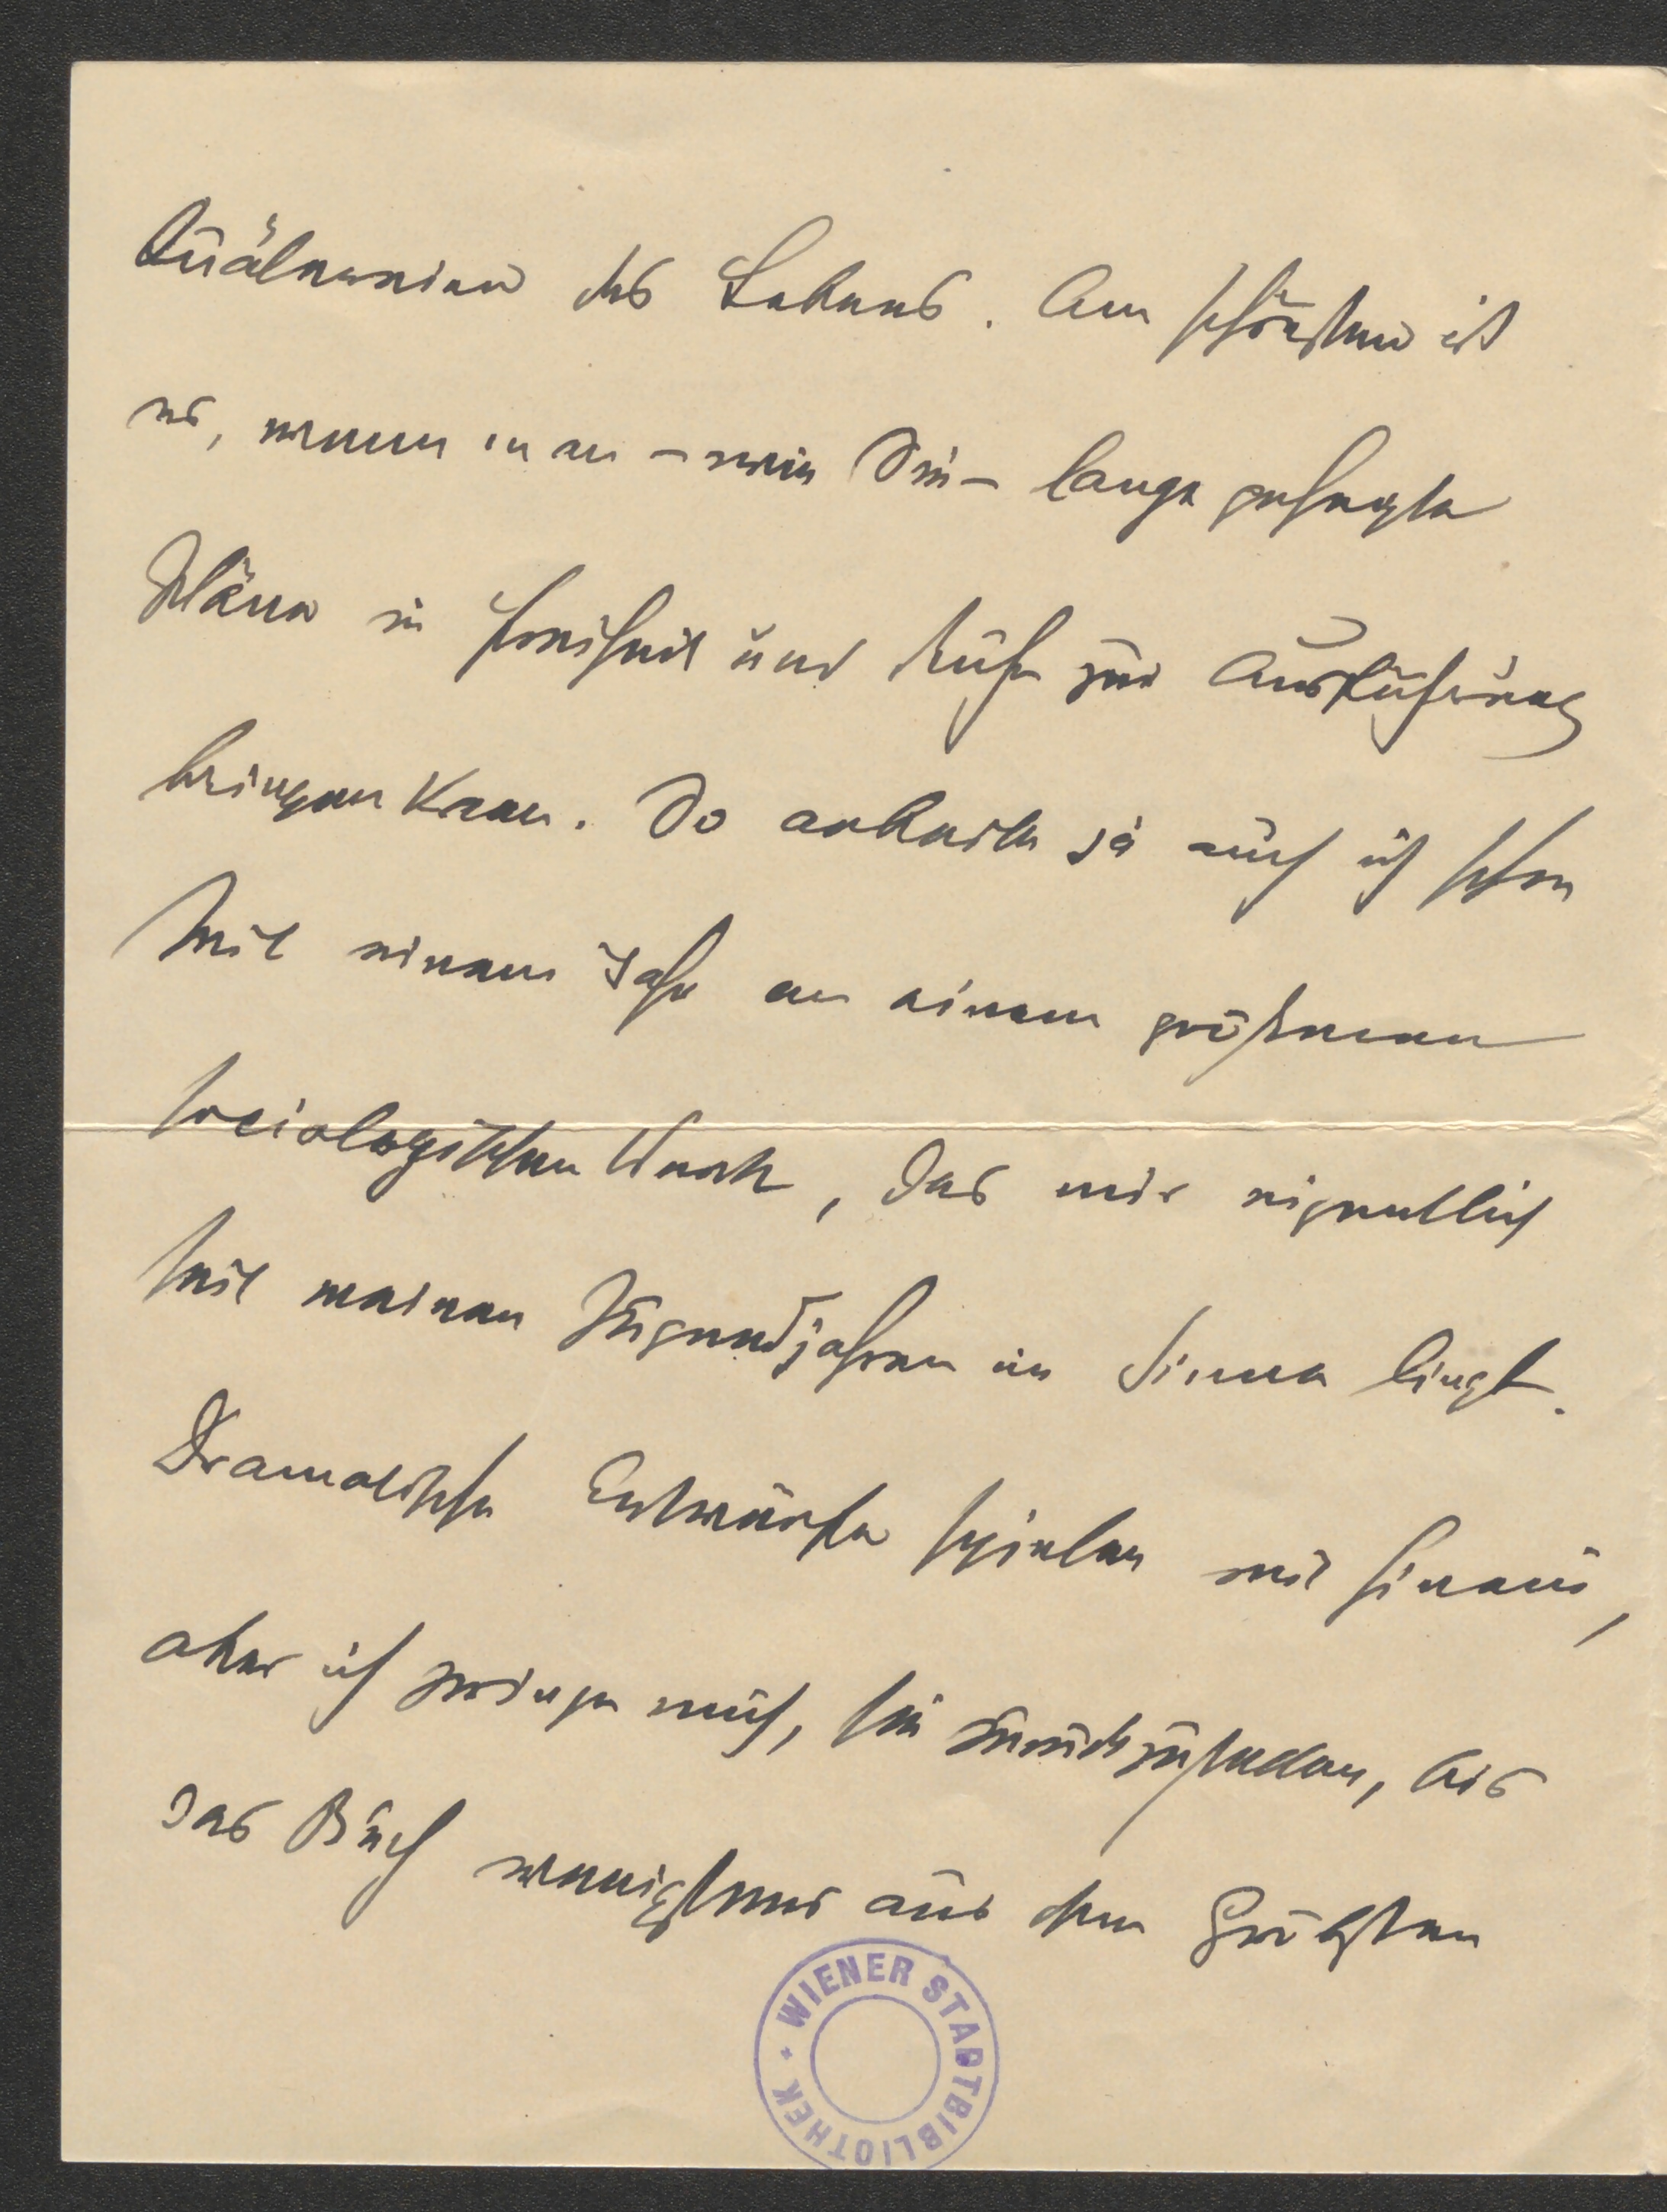 Quälereien des Lebens. Am schönsten ist
es, wenn man – wie Sie – lange gehegte
Pläne in Freiheit und Ruhe zur Ausführung
bringen kann. So arbeite ja auch ich schon
seit einem Jahr an einem größeren
sociologischen Werk, das mir eigentlich
seit meinen Jugendjahren im Sinne liegt.
Dramatische Entwürfe spielen mit hinein,
aber ich zwinge mich, sie zurückzustellen, bis
das Buch wenigstens aus dem Gröbsten
WIENER STADTBIBLIOTHEK